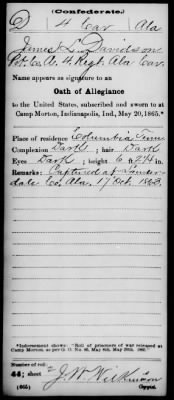 (Confederate.)
D 4 Cav Ala
James L. Davidson
Pvt. Co. A. 4. Regt. Ala Cav.
Name appears as signature to an
Oath of Allegiance
to the United States, subscribed and sworn to at
Camp Morton, Indianapolis, Ind., May 20, 1865.*
Place of residence Columbia Tenn
Complexion Dark ; hair Dark
Eyes Dark ; height 6 ft 2¼ in.
Remarks: Captured at Lauder-
dale Co. Ala. 17 Oct. 1863.
*Indorsement shows: "Roll of prisoners of war released at
Camp Morton, as per G. O. No. 85, May 8th,
Number of roll:
44; sheet
J. W. Wilkinson
(665) Copyist.